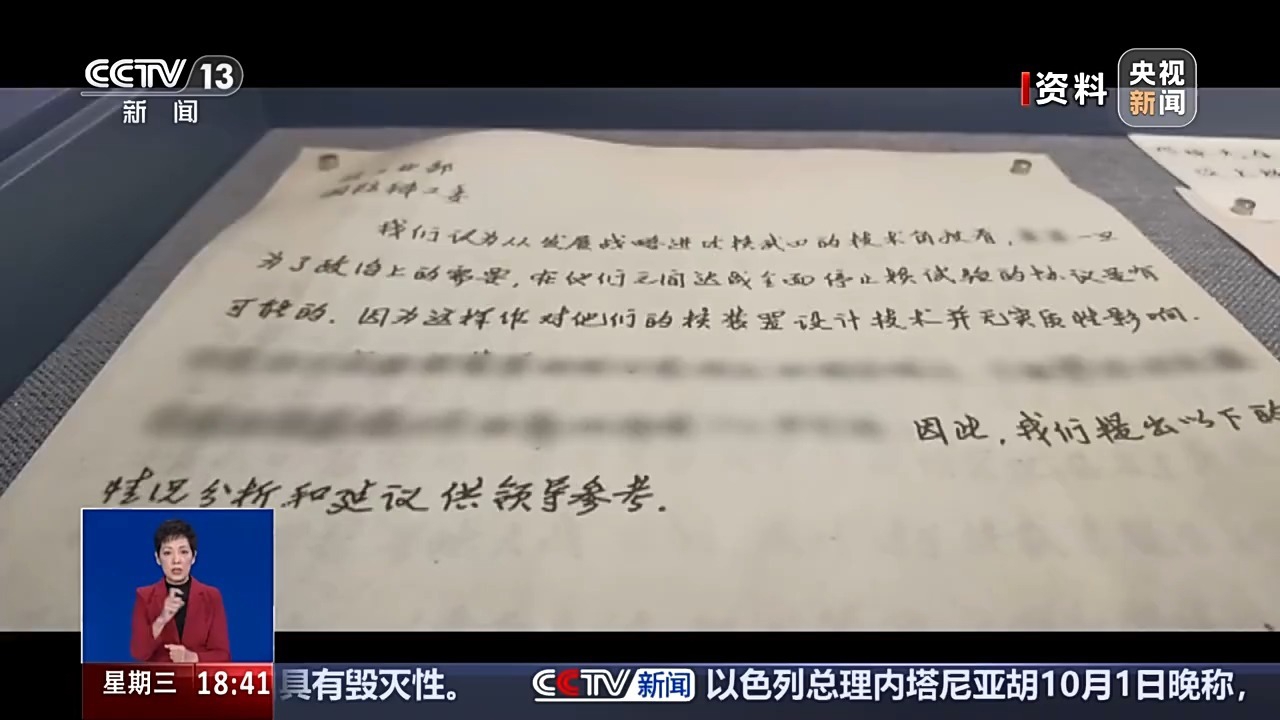 CCTV 13
新闻
资料
央视
新闻
业部
国防科工委
我们认为从发展战略进攻核武四的技术角度看，一旦
为了政治上的需要，在他们之间达成全面停止核试验的协议是有
可能的．因为这样作对他们的核装置设计技术并无实质性影响．
因此，我们提出以下的
情况分析和建议供领导参考．
星期三 18:41 具有毁灭性。 CCTV新闻 以色列总理内塔尼亚胡10月1日晚称，